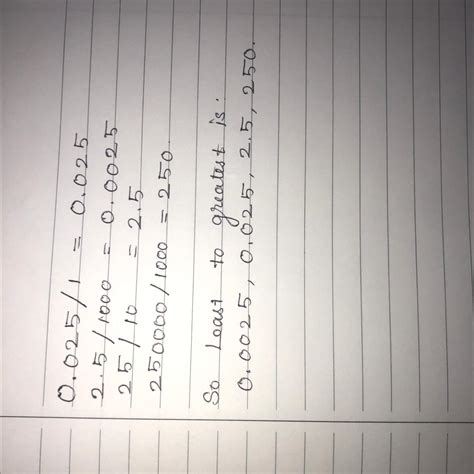 0.025/1 = 0.025
2.5/1000 = 0.0025
25/10 = 2.5
250000/1000 = 250.
So Least to greatest is:
0.0025, 0.025, 2.5, 250.